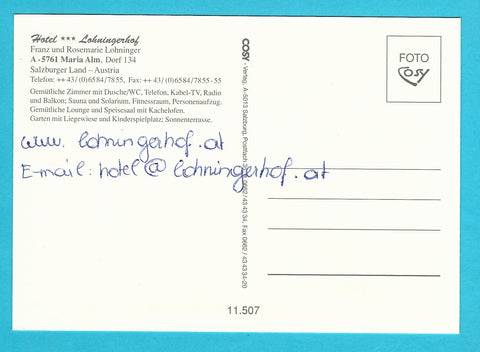 Hotel *** Lohningerhof
Franz und Rosemarie Lohninger
A-5761 Maria Alm, Dorf 134
Salzburger Land – Austria
Telefon: ++ 43/(0) 65 84/7855, Fax: ++ 43/(0) 6584/7855-55
Gemütliche Zimmer mit Dusche/WC, Telefon, Kabel-TV, Radio
und Balkon; Sauna und Solarium, Fitnessraum, Personenaufzug.
Gemütliche Lounge und Speisesaal mit Kachelofen.
Garten mit Liegewiese und Kinderspielplatz; Sonnenterrasse.
www. lohningerhof.at
E-mail: hotel@lohningerhof.at
COSY - Verlag, A-5013 Salzburg, Postfach 0662/43 43 34, Fax 0662 / 43 43 34-20
FOTO
COSY
11.507